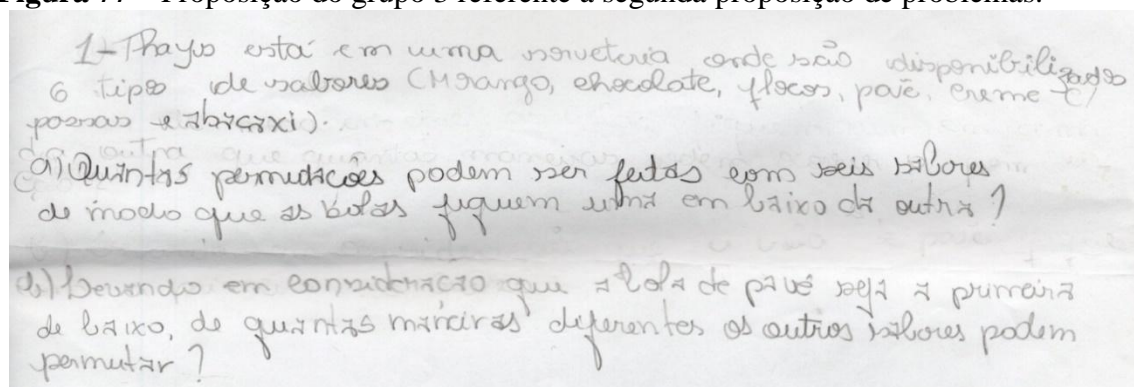 Figura 77 – Proposição do grupo 3 referente à segunda proposição de problemas.
1-Thays está em uma sorveteria onde são disponibilizados
6 tipos de sabores (Morango, chocolate, flocos, pavê, creme c/
passas e abacaxi).
a) Quantas permutacões podem ser feitas com seis sabores
de modo que as bolas fiquem uma em baixo da outra?
b) Levando em consideracao que a bola de pavê seja a primeira
de baixo, de quantas maneiras diferentes os outros sabores podem
permutar?